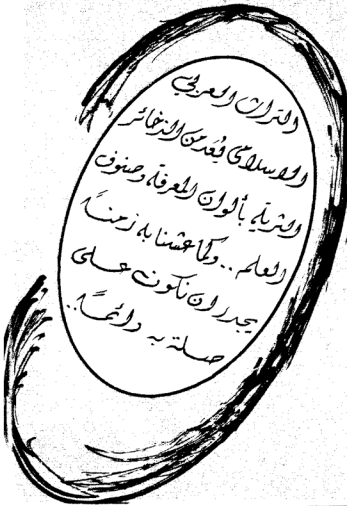 التراث العربي
الاسلامي يُعَد من الذخائر
الثرية بألوان المعرفة وصنوف
العلم .. وكما عشنا به زمنًا
يجدر ان نكون على
صلة به دائمًا ..